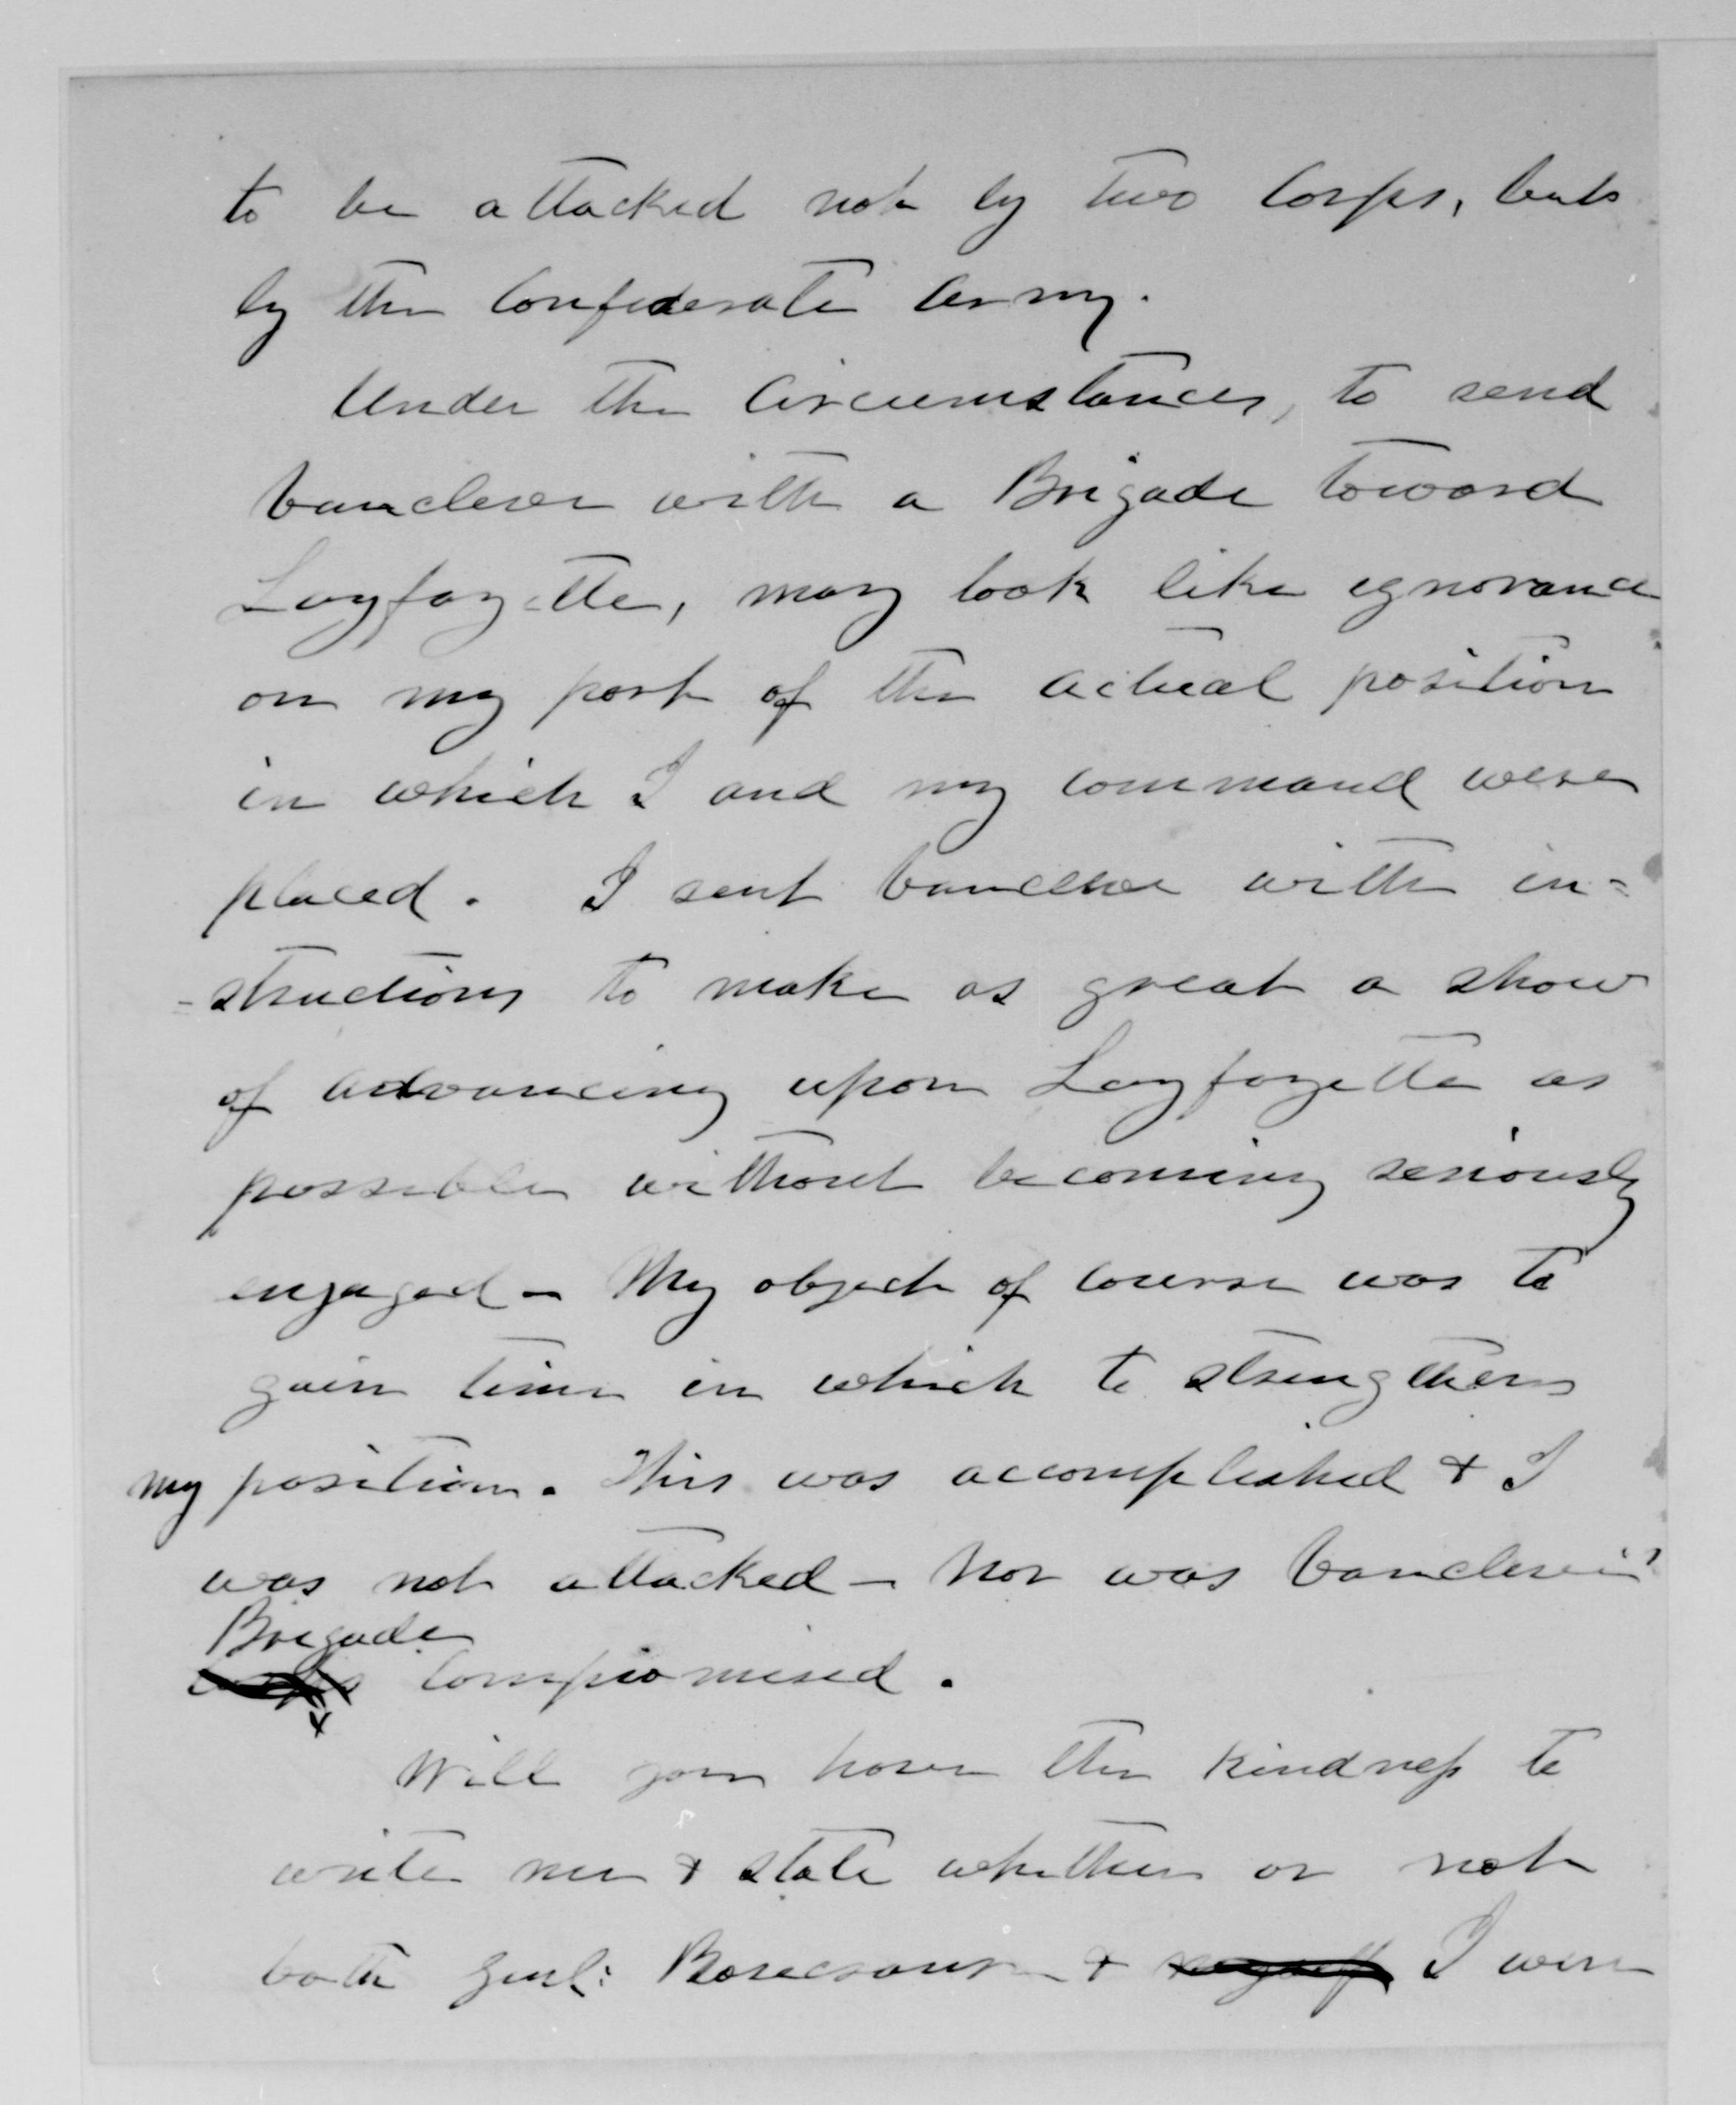 to be attacked not by two Corps, but
by the Confederate Army.
Under the Circumstances, to send
Vancleve with a Brigade toward
Layfayette, may look like ignorance
on my part of the actual position
in which I and my command were
placed. I sent Vancleve with in-
-structions to make as great a show
of advancing upon Layfayette as
possible without becoming seriously
engaged - My object of course was to
gain time in which to strengthen
my position. This was accomplished & I
was not attacked - Nor was Vancleve's
Brigade
Corps Compromised.
Will you have the kindness to
write me & state whether or not
both Genl: Rosecrans & myself I were